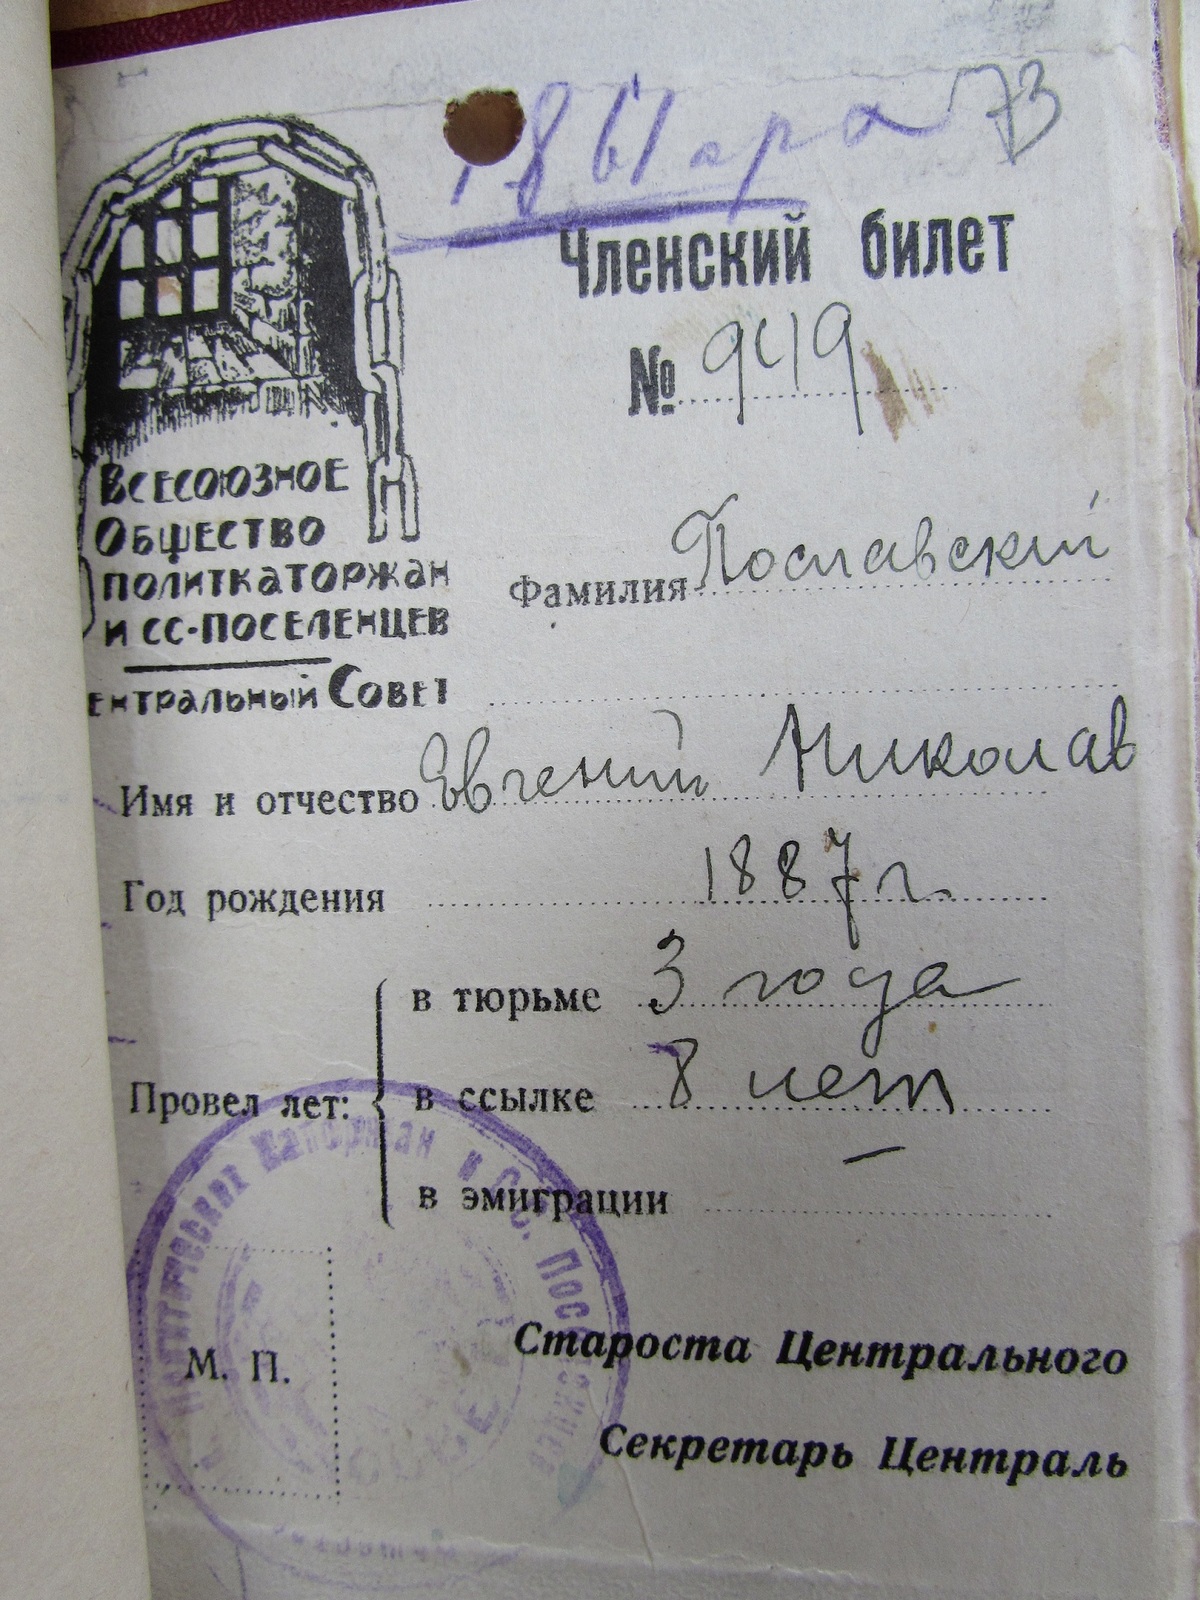 73
Членский билет
№ 949
Всесоюзное
Общество
политкаторжан
и сс-поселенцев
ентральный Совет
Фамилия Пославский
Имя и отчество Евгений Николав
Год рождения 1887 г.
Провел лет:
в тюрьме 3 года
в ссылке 8 лет
в эмиграции —
М. П.
Политических Каторжан и Сс. Поселенцев
Староста Центрального
Секретарь Централь